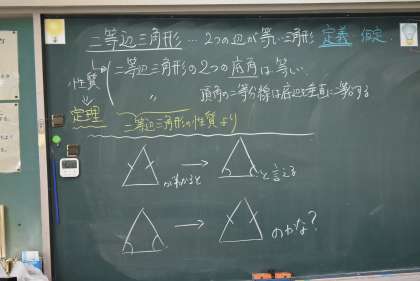 二等辺三角形…2つの辺が等しい三角形 定義 仮定
性質 二等辺三角形の2つの底角は等しい
〃 頂角の二等分線は底辺を垂直に二等分する
定理 二等辺三角形の性質より
がわかると → と言える
→ のかな?